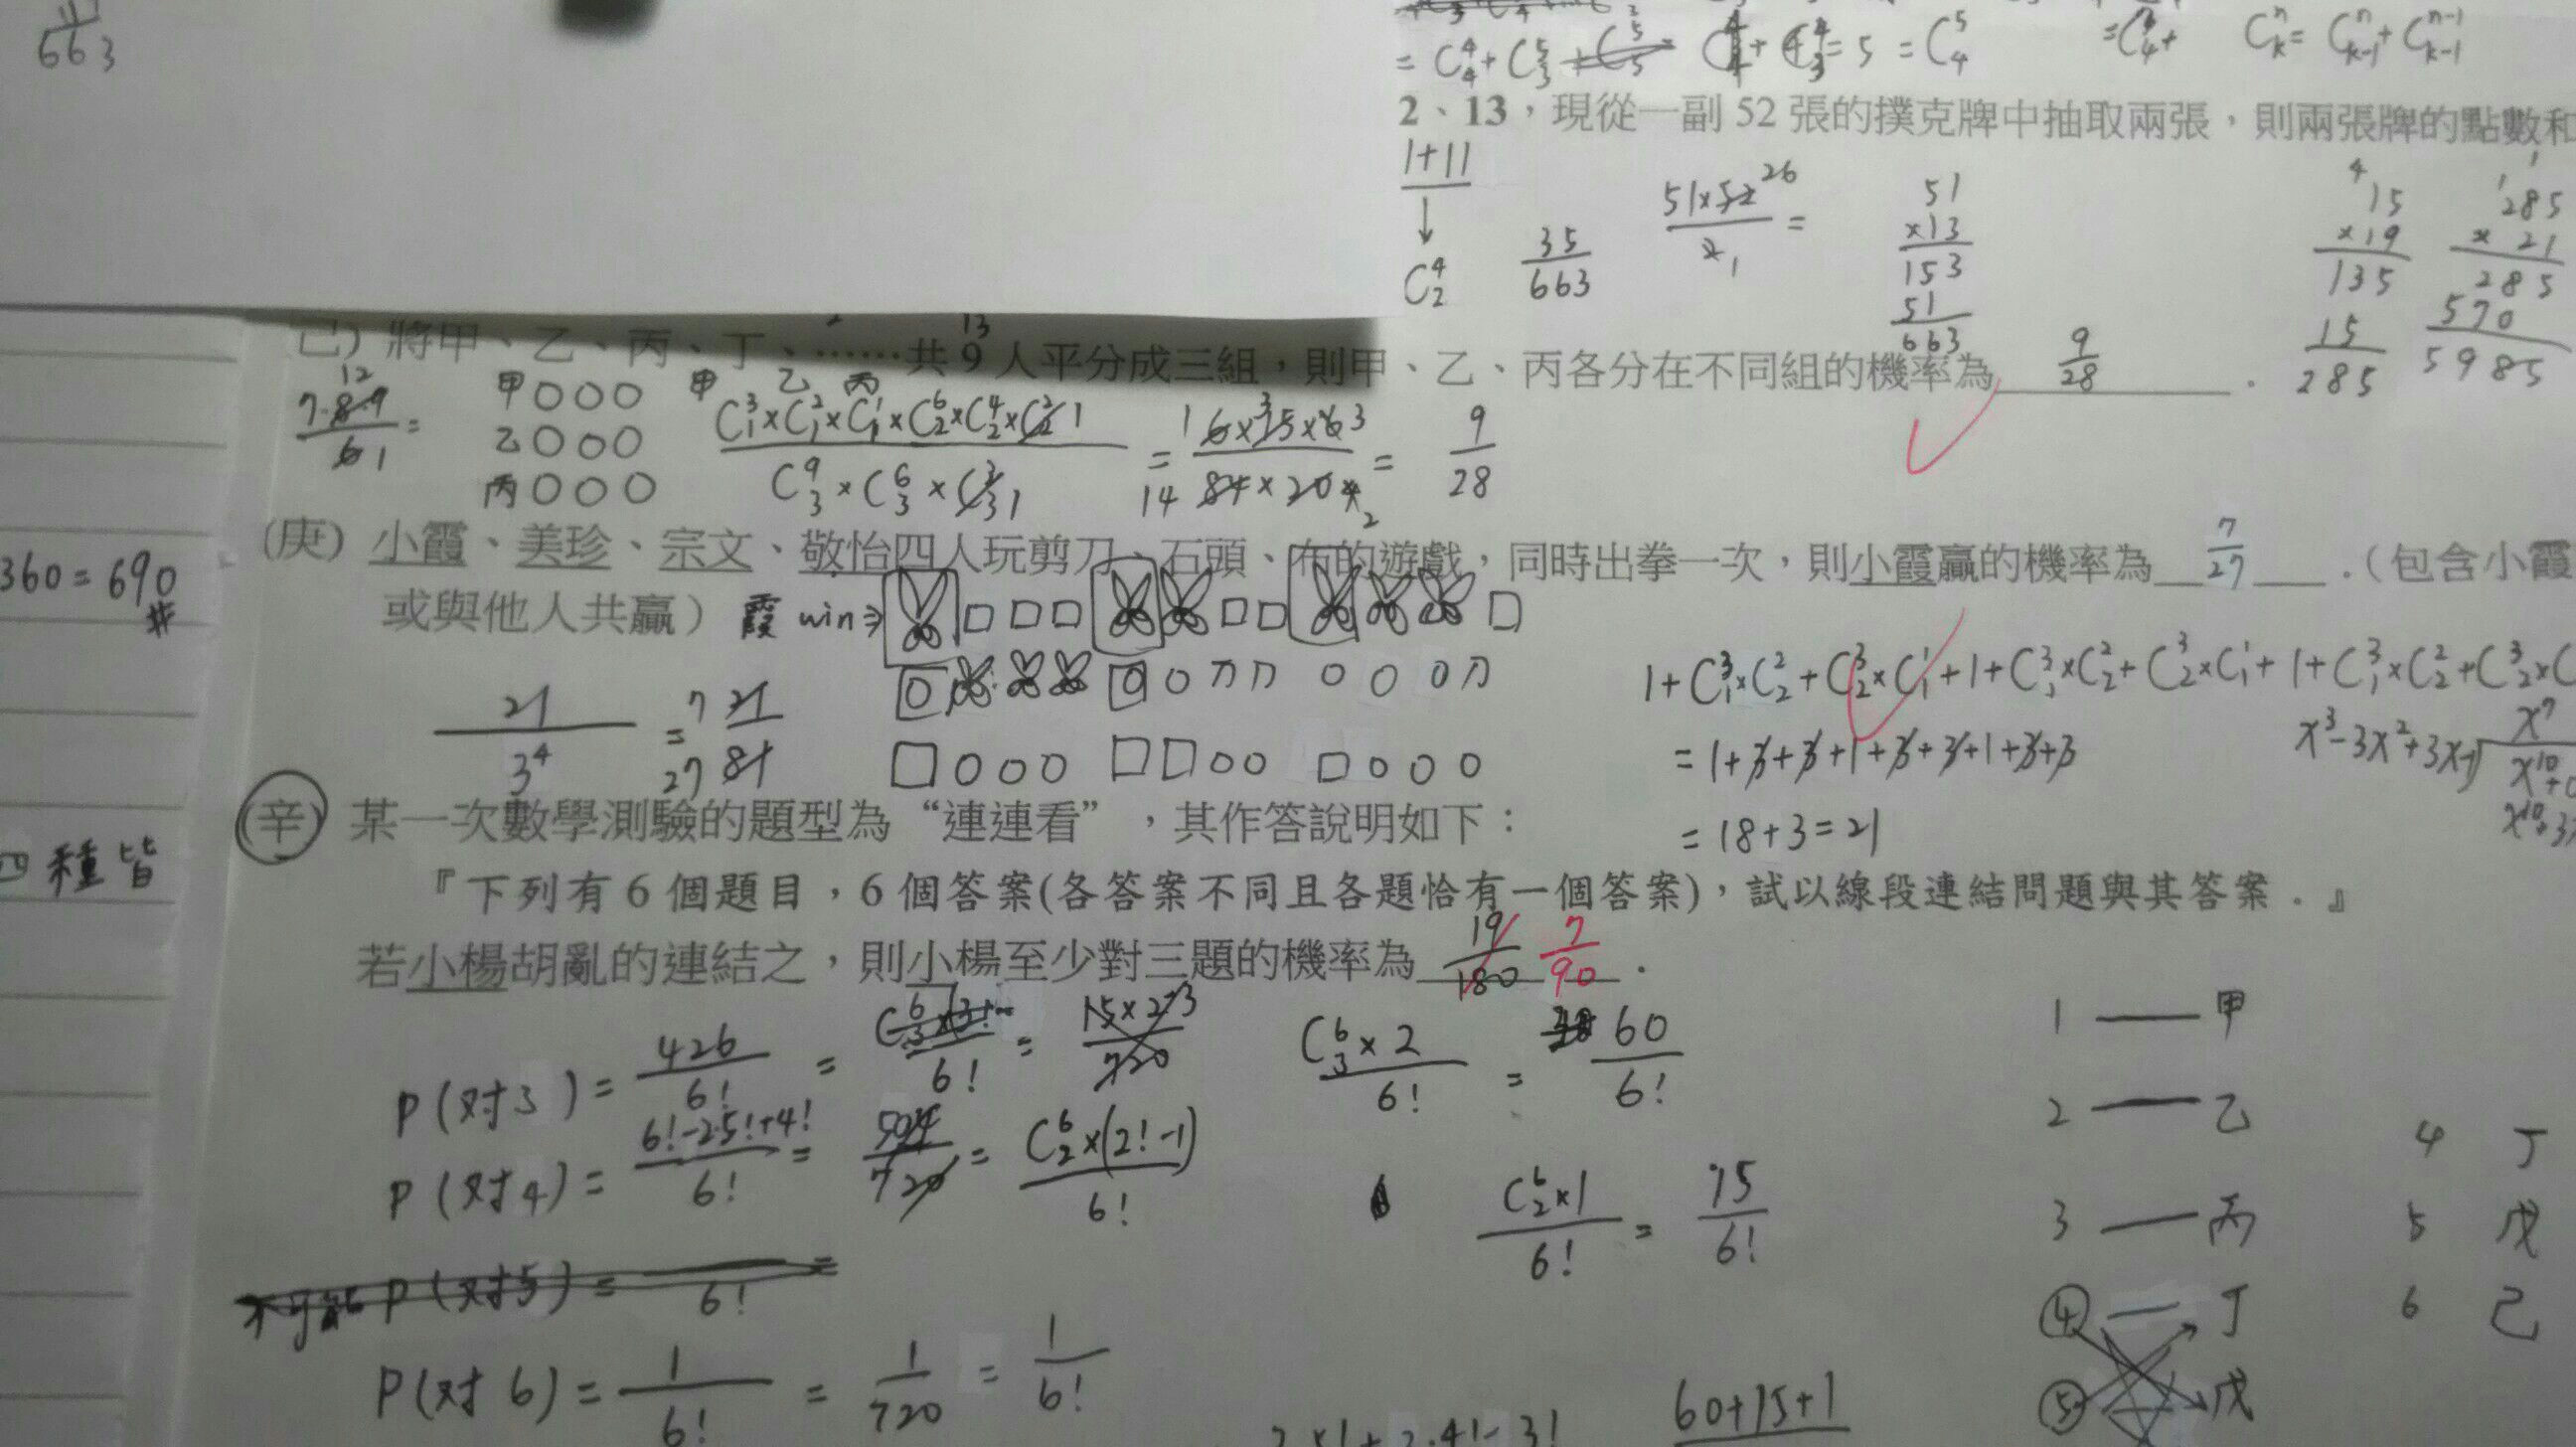 663
= C⁴₄ + C⁵₃ + C⁵₅ C⁴₄ + C⁴₃ = 5 = C⁵₄
Cⁿₖ = Cⁿₖ₋₁ + Cⁿ⁻¹ₖ₋₁
2、13，現從一副 52 張的撲克牌中抽取兩張，則兩張牌的點數和
1+11
↓
C⁴₂
35/663
51×52 26 / 2 1 =
51
×13
153
51
663
4
15
×19
135
15
285
285
× 21
285
570
5985
己）將甲、乙、丙、丁、……共 9 人平分成三組，則甲、乙、丙各分在不同組的機率為 9/28 .
12
7·8·9 / 6 1 =
甲○○○
乙○○○
丙○○○
甲 乙 丙
C³₁×C²₁×C¹₁×C⁶₂×C⁴₂×C²₂ 1 / C⁹₃×C⁶₃×C³₃ 1 = 1 6×15×6 3 / 14 84×20 2 = 9/28
(庚) 小霞、美珍、宗文、敬怡四人玩剪刀、石頭、布的遊戲，同時出拳一次，則小霞贏的機率為 7/27 .（包含小霞
或與他人共贏） 霞 win⇒
360 = 690 #
1+C³₁×C²₂+C³₂×C¹₁+1+C³₁×C²₂+C³₂×C¹₁+1+C³₁×C²₂+C³₂×C
21/3⁴ = 7 21 / 27 81
= 1+3+3+1+3+3+1+3+3
= 18+3 = 21
x³-3x²+3x-1
x⁷
x¹⁰
(辛) 某一次數學測驗的題型為“連連看”，其作答說明如下：
四種皆
『下列有 6 個題目，6 個答案(各答案不同且各題恰有一個答案)，試以線段連結問題與其答案．』
若小楊胡亂的連結之，則小楊至少對三題的機率為 19/180 7/90 .
P(对3) = 426/6! = C⁶₃×3!/6! = 15×2×3/720
C⁶₃×2/6! = 60/6!
P(对4) = 6!-2·5!+4!/6! = 504/720 = C⁶₂×(2!-1)/6!
C⁶₂×1/6! = 15/6!
不可能 P(对5) = /6! =
P(对 6) = 1/6! = 1/720 = 1/6!
1 — 甲
2 — 乙
3 — 丙
④ — 丁
⑤ 戊
4 丁
5 戊
6 己
60+15+1